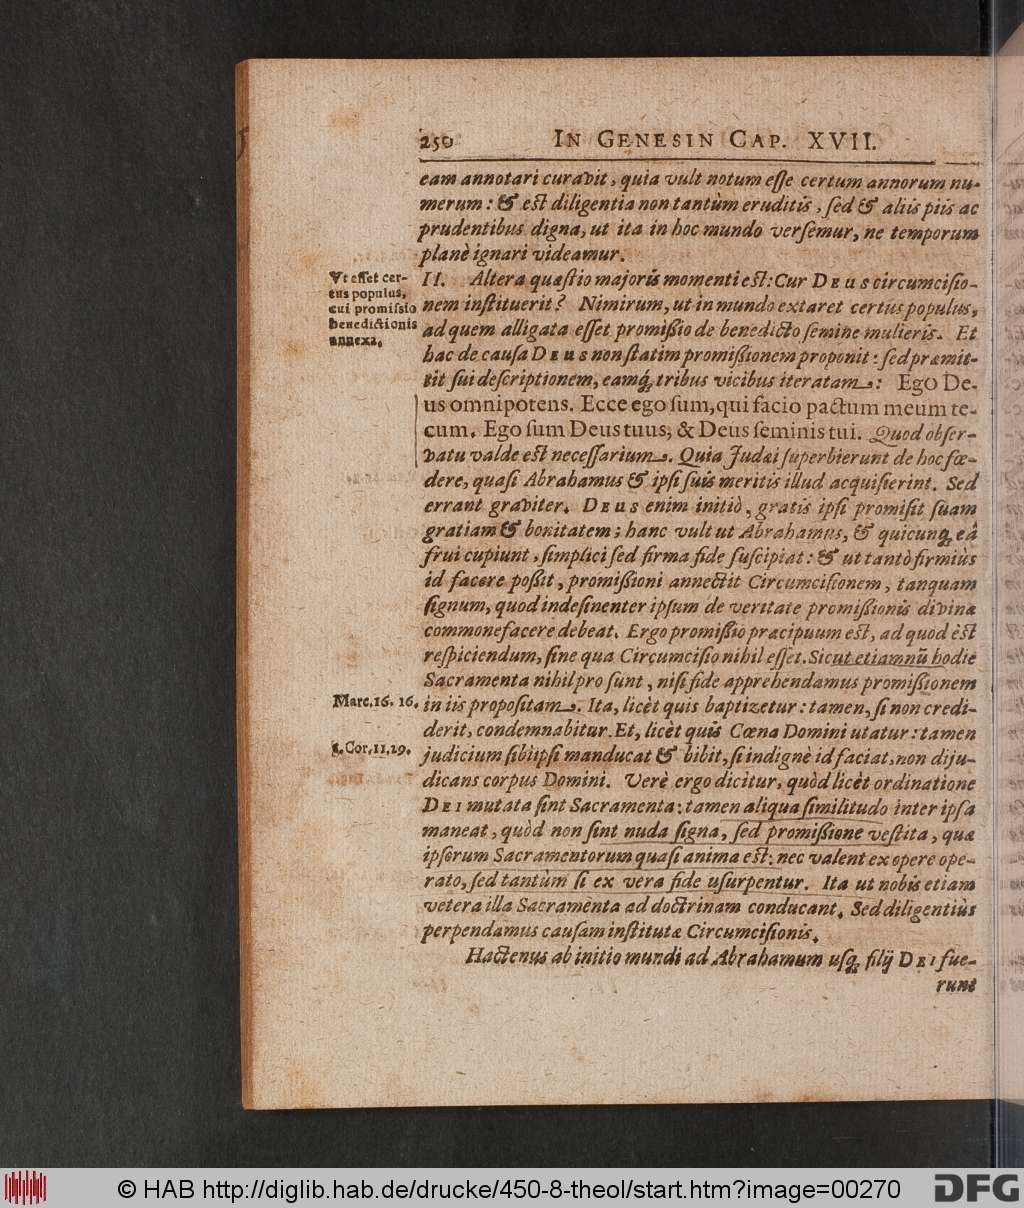 250 IN GENESIN CAP. XVII.
eam annotari curavit, quia vult notum eſſe certum annorum nu-
merum: & eſt diligentia non tantùm eruditis, ſed & aliis piis ac
prudentibus digna, ut ita in hoc mundo verſemur, ne temporum
planè ignari videamur.
Vt eſſet cer-
tus populus,
cui promiſsio
benedictionis
annexa.
II. Altera quæſtio majoris momenti eſt: Cur DEUS circumciſio-
nem inſtituerit? Nimirum, ut in mundo extaret certus populus,
ad quem alligata eſſet promißio de benedicto ſemine mulieris. Et
hac de cauſa DEUS non ſtatim promißionem proponit: ſed præmit-
tit ſui deſcriptionem, eamq́; tribus vicibus iteratam: Ego De-
us omnipotens. Ecce ego ſum, qui facio pactum meum te-
cum. Ego ſum Deus tuus, & Deus ſeminis tui. Quod obſer-
vatu valde eſt neceſſarium. Quia Judæi ſuperbierunt de hoc fœ-
dere, quaſi Abrahamus & ipſi ſuis meritis illud acquiſierint. Sed
errant graviter. DEUS enim initiò, gratis ipſi promiſit ſuam
gratiam & bonitatem; hanc vult ut Abrahamus, & quicunq; eâ
frui cupiunt, ſimplici ſed firma fide ſuſcipiat: & ut tantò firmiùs
id facere poßit, promißioni annectit Circumciſionem, tanquam
ſignum, quod indeſinenter ipſum de veritate promißionis divinæ
commonefacere debeat. Ergo promißio præcipuum eſt, ad quod eſt
reſpiciendum, ſine qua Circumciſio nihil eſſet. Sicut etiamnū hodie
Sacramenta nihil pro ſunt, niſi fide apprehendamus promißionem
Marc. 16. 16.
in iis propoſitam. Ita, licèt quis baptizetur: tamen, ſi non credi-
derit, condemnabitur. Et, licèt quis Cœna Domini utatur: tamen
1. Cor. 11, 29.
judicium ſibiipſi manducat & bibit, ſi indignè id faciat, non diju-
dicans corpus Domini. Verè ergo dicitur, quòd licèt ordinatione
DEI mutata ſint Sacramenta: tamen aliqua ſimilitudo inter ipſa
maneat, quòd non ſint nuda ſigna, ſed promißione veſtita, quæ
ipſorum Sacramentorum quaſi anima eſt: nec valent ex opere ope-
rato, ſed tantùm ſi ex vera fide uſurpentur. Ita ut nobis etiam
vetera illa Sacramenta ad doctrinam conducant. Sed diligentiùs
perpendamus cauſam inſtitutæ Circumciſionis.
Hactenus ab initio mundi ad Abrahamum uſq; filij DEI fue-
runt
© HAB http://diglib.hab.de/drucke/450-8-theol/start.htm?image=00270
DFG